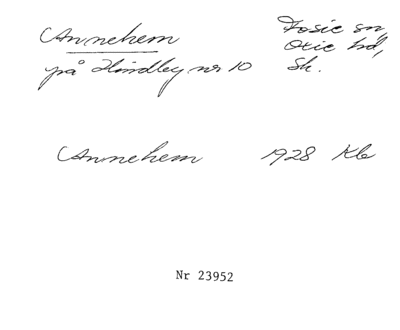 Annehem
Fosie sn,
Oxie hd,
på Hindby nr 10
Sk.
Annehem 1928 Kb
Nr 23952